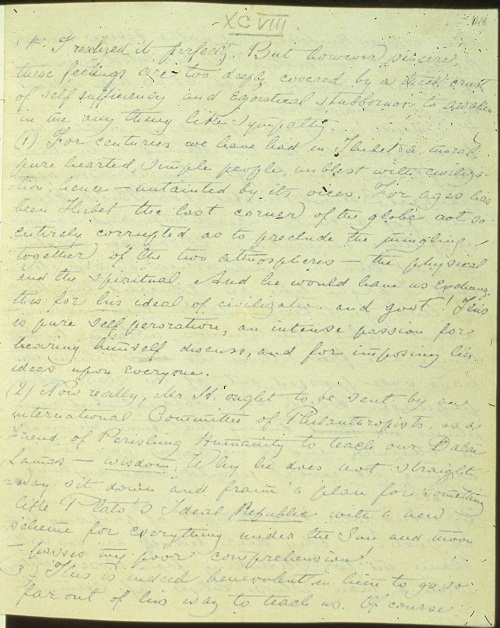 XCVIII
I realized it perfectly. But however sincere,
these feelings are too deeply covered by a thick crust
of self sufficiency and egoistical stubbornness to awaken
in me any thing like sympathy.
(1) For centuries we have had in Thibet a moral,
pure hearted, simple people, unblest with civiliza-
tion, hence — untainted by its vices. For ages has
been Thibet the last corner of the globe not so
entirely corrupted as to preclude the mingling
together of the two atmospheres — the physical
and the spiritual. And he would have us exchange
this for his ideal of civilization and govt! This
is pure self peroration, an intense passion for
hearing himself discuss, and for imposing his
ideas upon everyone.
(2) Now really, Mr H. ought to be sent by an
international Committee of Philanthropists, as a
Friend of Perishing Humanity to teach our Dalai
Lamas — wisdom. Why he does not straight-
way sit down and frame a plan for something
like Plato's Ideal Republic with a new
scheme for everything under the Sun and moon
— passes my poor comprehension!
(3) This is indeed benevolent in him to go so
far out of his way to teach us. Of course